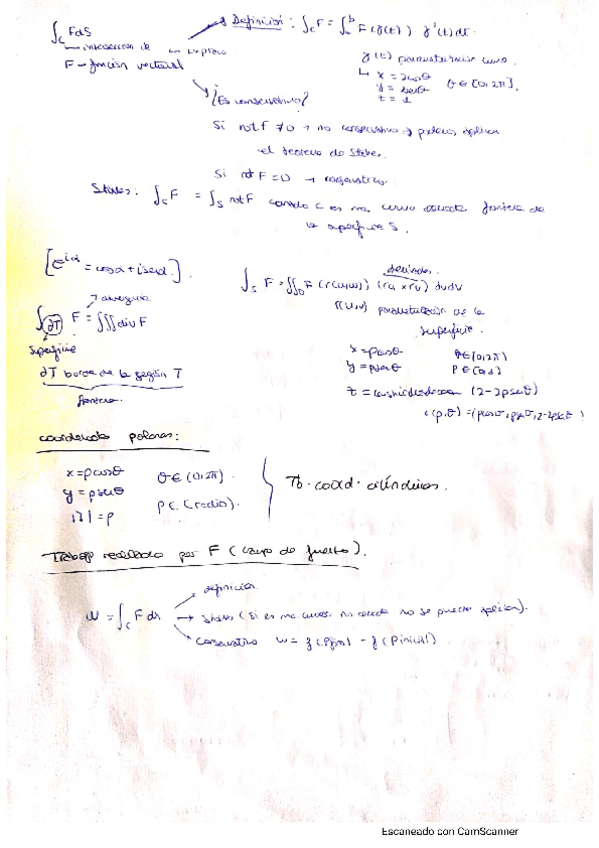 ∫_C F dS
→ Definición: ∫_C F = ∫_a^b F(γ(t)) γ'(t) dt.
intersección de un
F → función vectorial
γ(t) parametrización curva.
x = 2cosθ
y = 2senθ θ ∈ [0, 2π].
¿Es conservativo?
Si rot F ≠ 0 → no conservativo → podemos aplicar
el teorema de Stokes.
Si rot F = 0 → conservativo.
Stokes: ∫_C F = ∫_S rot F cuando C es una curva cerrada frontera de
la superficie S.
[e^{iα} = cosα + i senα].
∫_S F = ∬_D F(r(u,v)) (ru × rv) du dv
∫_{∂T} F = ∭ div F
r(u,v) parametrización de la
superficie.
superficie
∂T borde de la región T
frontera
x = ρcosθ θ ∈ (0, 2π)
y = ρsenθ
(2 - 2ρsenθ)
r(ρ,θ) = (ρcosθ, ρsenθ, 2-2ρsenθ)
coordenadas polares:
x = ρcosθ θ ∈ (0, 2π).
y = ρsenθ ρ ∈ (radio).
|J| = ρ
Tb. coord. cilíndricas.
Trabajo realizado por F (campo de fuerzas).
definición.
W = ∫_C F dr → Stokes (si es una curva no cerrada no se puede aplicar).
conservativo W = f(Pfin) - f(Pinicial).
Escaneado con CamScanner